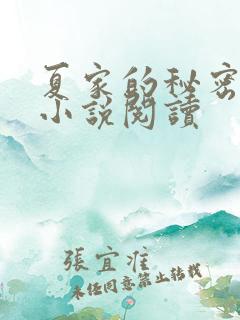 夏家的秘密
小說閱讀
張宜准
未任同意禁止转载